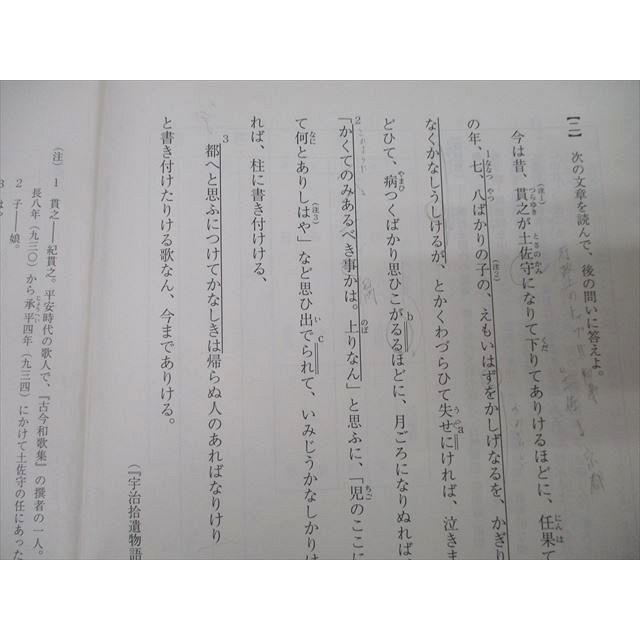 【二】 次の文章を読んで、後の問いに答えよ。
今は昔、貫之が土佐守になりて下りてありけるほどに、任果て
の年、七、八ばかりの子の、えもいはずをかしげなるを、かぎり
なくかなしうしけるが、とかくわづらひて失せにければ、泣きま
どひて、病つくばかり思ひこがるるほどに、月ごろになりぬれば
「かくてのみあるべき事かは。上りなん」と思ふに、「児のここに
て何とありしはや」など思ひ出でられて、いみじうかなしかりけ
れば、柱に書き付けける、
都へと思ふにつけてかなしきは帰らぬ人のあればなりけり
と書き付けたりける歌なん、今までありける。
(『宇治拾遺物語
(注) 1 貫之――紀貫之。平安時代の歌人で、『古今和歌集』の撰者の一人。
長八年(九三〇)から承平四年(九三四)にかけて土佐守の任にあった
2 子――娘。